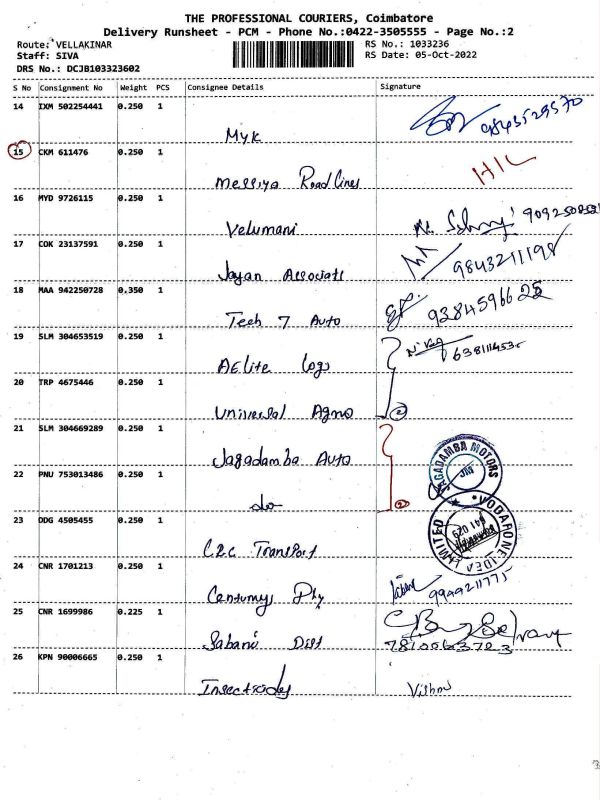 THE PROFESSIONAL COURIERS, Coimbatore
Delivery Runsheet - PCM - Phone No.:0422-3505555 - Page No.:2
Route: VELLAKINAR
RS No.: 1033236
Staff: SIVA
RS Date: 05-Oct-2022
DRS No.: DCJB103323602
S No Consignment No Weight PCS Consignee Details Signature
14 IXM 502254441 0.250 1
Myk 9843529570
15 CKM 611476 0.250 1
Messiya Roadlines
16 MYD 9726115 0.250 1
Velumani
17 COK 23137591 0.250 1
Jayan Associats 9843211198
18 MAA 942250728 0.350 1
Tech 7 Auto 9384596625
19 SLM 304653519 0.250 1
AElite Logo
20 TRP 4675446 0.250 1
Universal Agro 2
21 SLM 304669289 0.250 1
Jagadamba Auto
JAGADAMBA MOTORS
JM
22 PNU 753013486 0.250 1
do 2
VODAFONE IDEA LIMITED
23 ODG 4505455 0.250 1
C2C Transport
24 CNR 1701213 0.250 1
Centumys Phy
25 CNR 1699986 0.225 1
Sabani Dist
26 KPN 90006665 0.250 1
Insecticides Vishnu